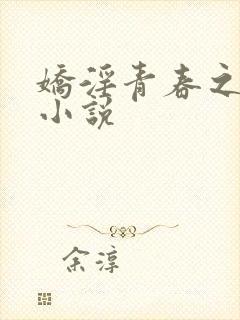 嬌淫青春之
小說
余淳